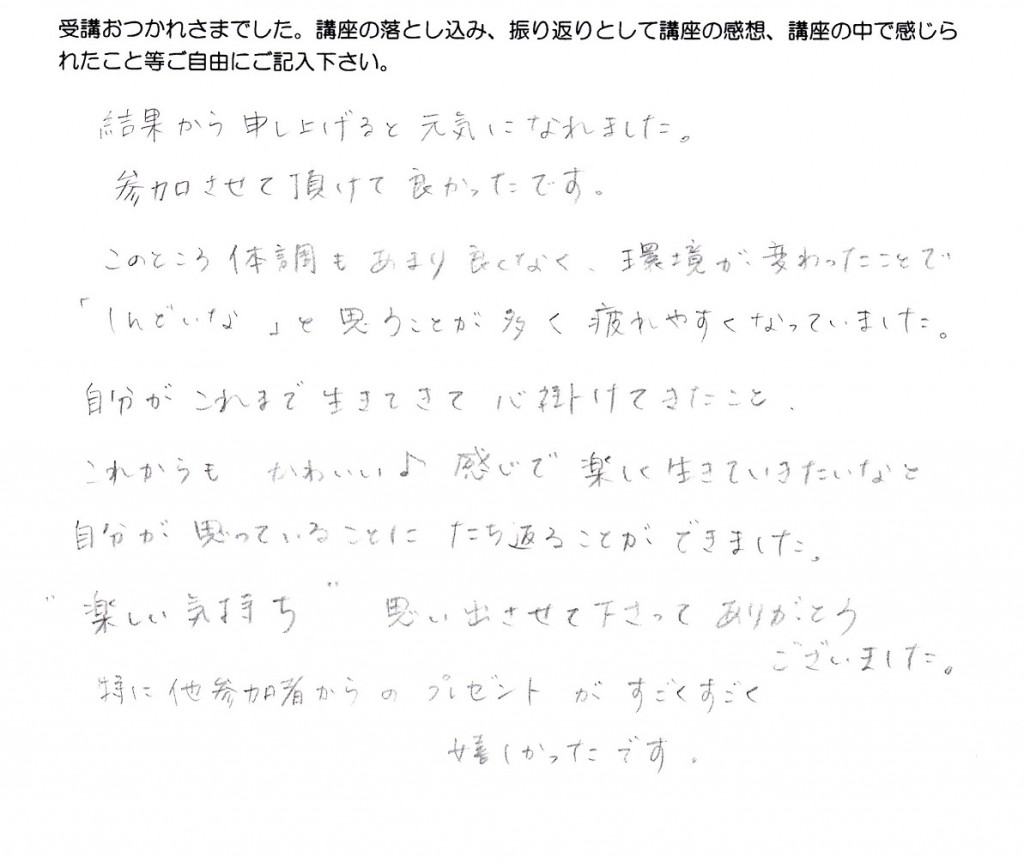 受講おつかれさまでした。講座の落とし込み、振り返りとして講座の感想、講座の中で感じら
れたこと等ご自由にご記入下さい。
結果から申し上げると元気になれました。
参加させて頂けて良かったです。
このところ体調もあまり良くなく、環境が変わったことで
「しんどいな」と思うことが多く疲れやすくなっていました。
自分がこれまで生きてきて心掛けてきたこと、
これからもかわいい♪感じで楽しく生きていきたいなと
自分が思っていることにたち返ることができました。
"楽しい気持ち"思い出させて下さってありがとう
ございました。
特に他参加者からのプレゼントがすごくすごく
嬉しかったです。